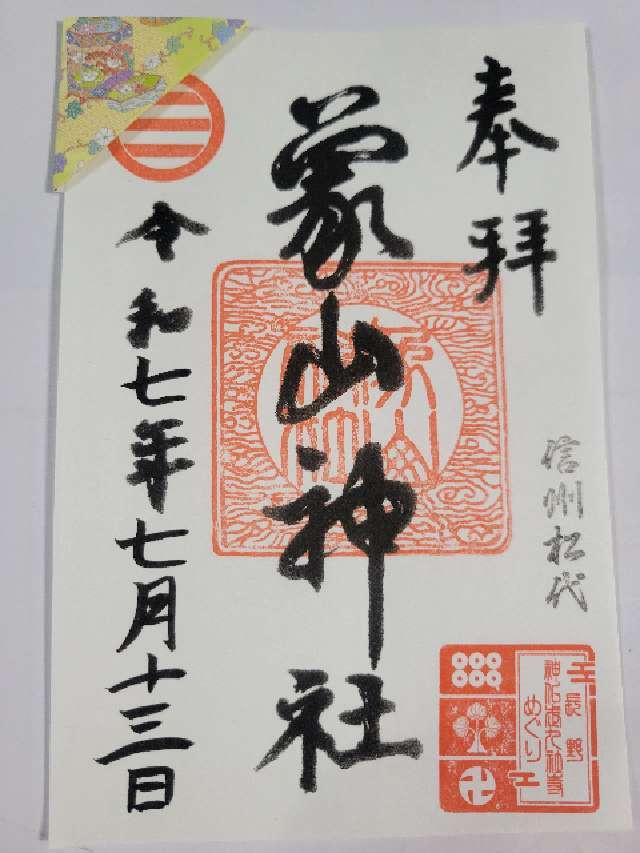 奉拝
信州松代
象山神社
令和七年七月十三日
長野
めぐり